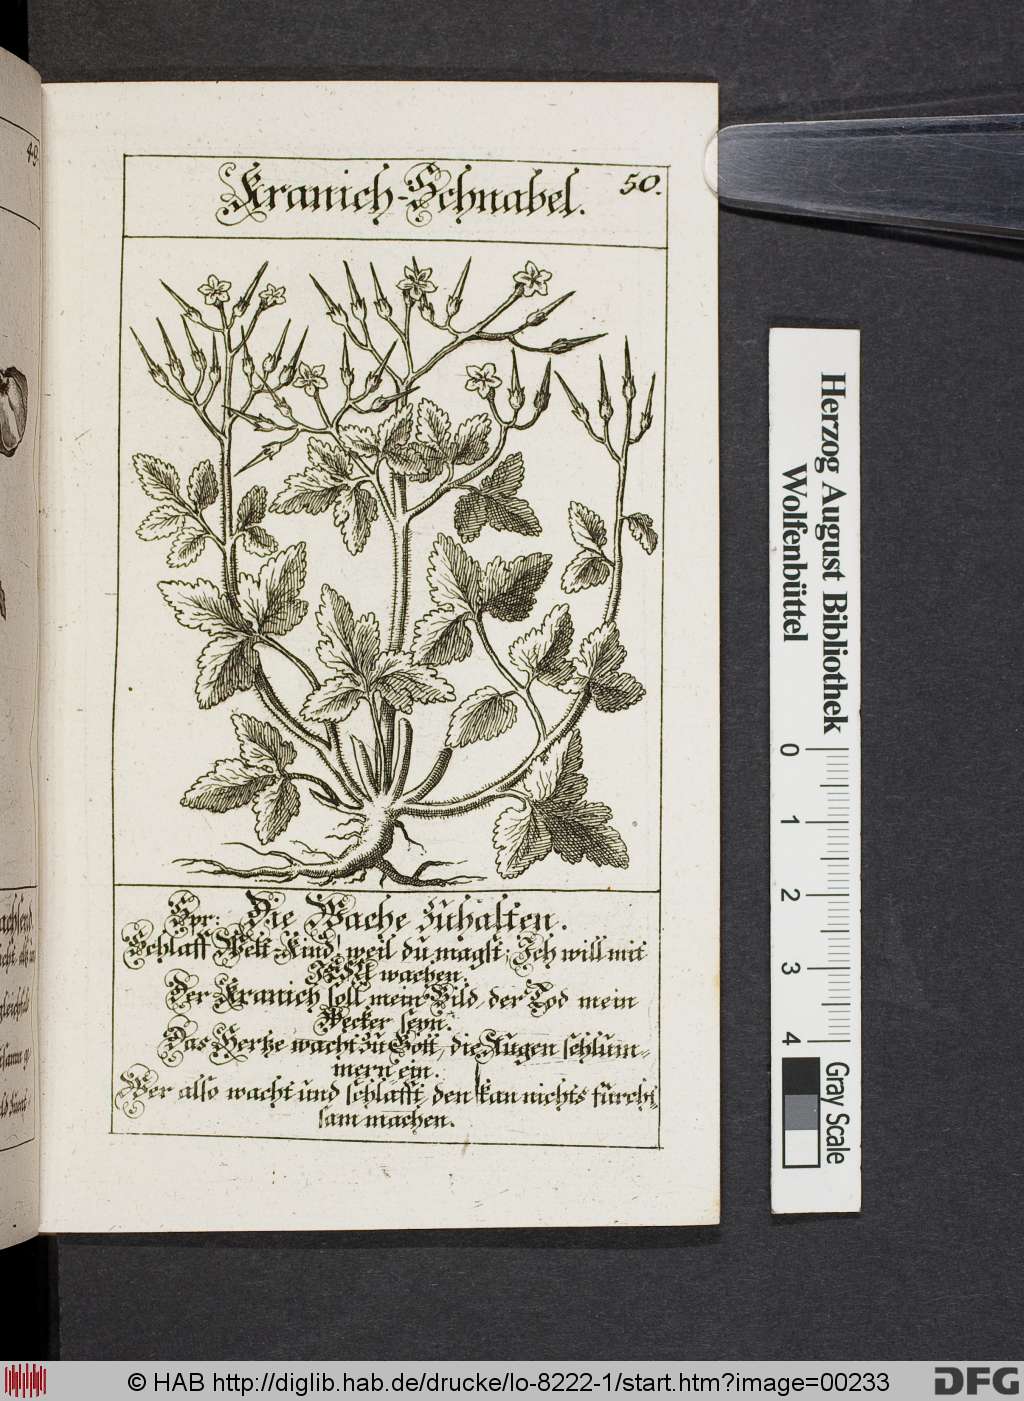 49
Kranich-Schnabel.
50.
Spr: Die Wache zuhalten.
Schlaff Welt-Kind, weil du magst, Ich will mit
JESU wachen.
Der Kranich soll mein Bild, der Tod mein
Wecker seyn.
Das Hertze wacht zu Gott, die Augen schlum-
mern ein.
Wer also wacht und schläfft, den kan nichts fürcht-
sam machen.
Herzog August Bibliothek
Wolfenbüttel
0 1 2 3 4
Gray Scale
© HAB http://diglib.hab.de/drucke/lo-8222-1/start.htm?image=00233
DFG